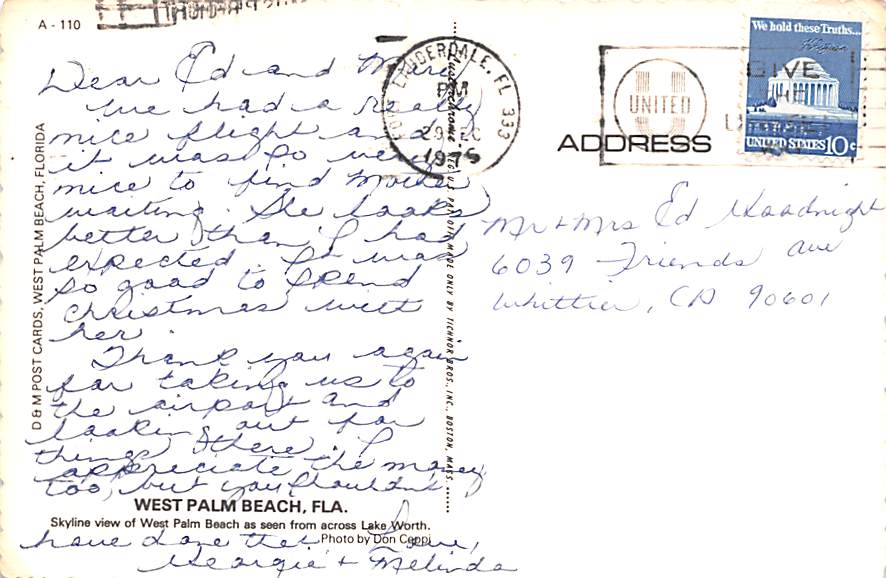 A - 110
D & M POST CARDS, WEST PALM BEACH, FLORIDA
Dear Ed and
We had a really
nice flight and
it was so very
nice to find Mother
waiting. She looks
better than I had
expected. It was
so good to spend
Christmas with
her.
Thank you again
for taking us to
the airport and
looking out for
things there. I
appreciate the money
too, but you shouldn't
have done that. Love,
Georgie + Melinda
WEST PALM BEACH, FLA.
Skyline view of West Palm Beach as seen from across Lake Worth.
Photo by Don Ceppi
MADE ONLY BY TICHNOR BROS., INC., BOSTON, MASS.
FORT LAUDERDALE, FL 333
PM
29 DEC
1975
GIVE
THE
UNITED
WAY
We hold these Truths...
UNITED STATES 10c
ADDRESS
Mr + Mrs Ed Goodnight
6039 Friends Ave
Whittier, CA 90601